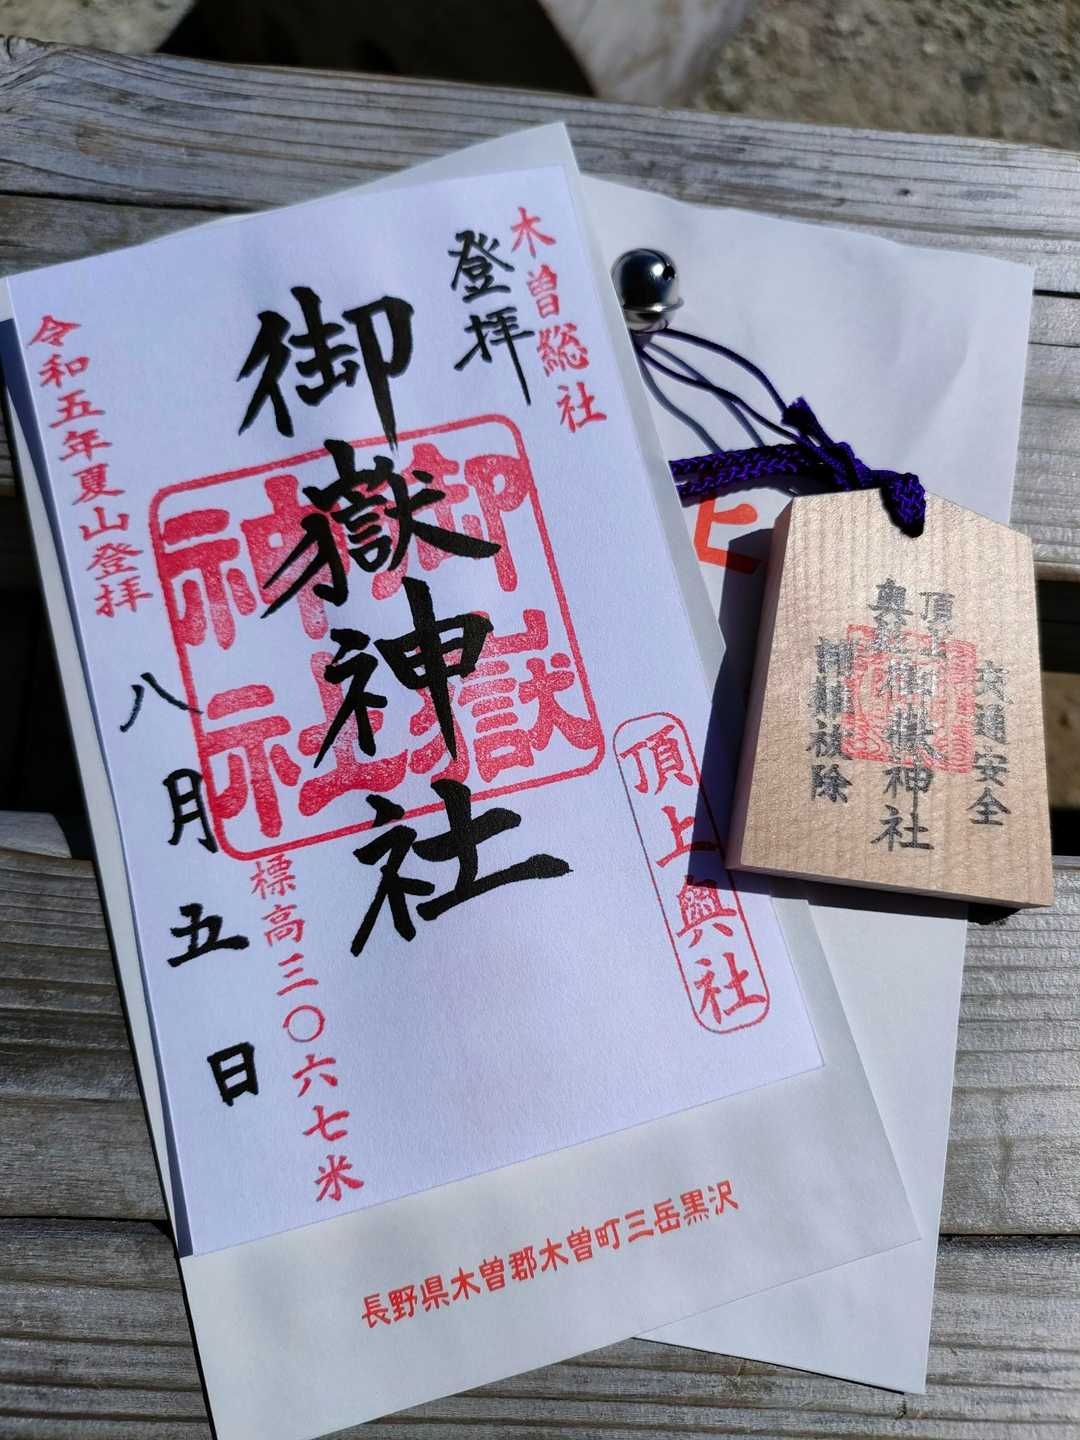 木曽総社
登拝
御嶽神社
御嶽
神社
頂上奥社
標高三〇六七米
令和五年夏山登拝
八月五日
長野県木曽郡木曽町三岳黒沢
交通安全
頂上
奥社
御嶽神社
被除